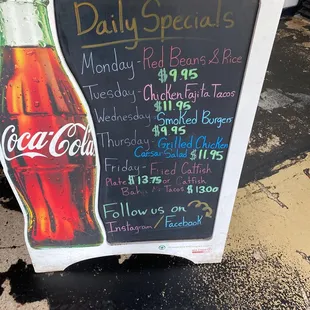 Daily Specials
Monday - Red Beans & Rice
$9.95
Tuesday - Chicken Fajita Tacos
$11.95
Wednesday - Smoked Burger
$9.95
Thursday - Grilled Chicken
Caesar Salad $11.95
Friday - Fried Catfish
Plate $13.75 or Catfish
Tacos $13.00
Follow us on
Instagram / Facebook
Coca-Cola